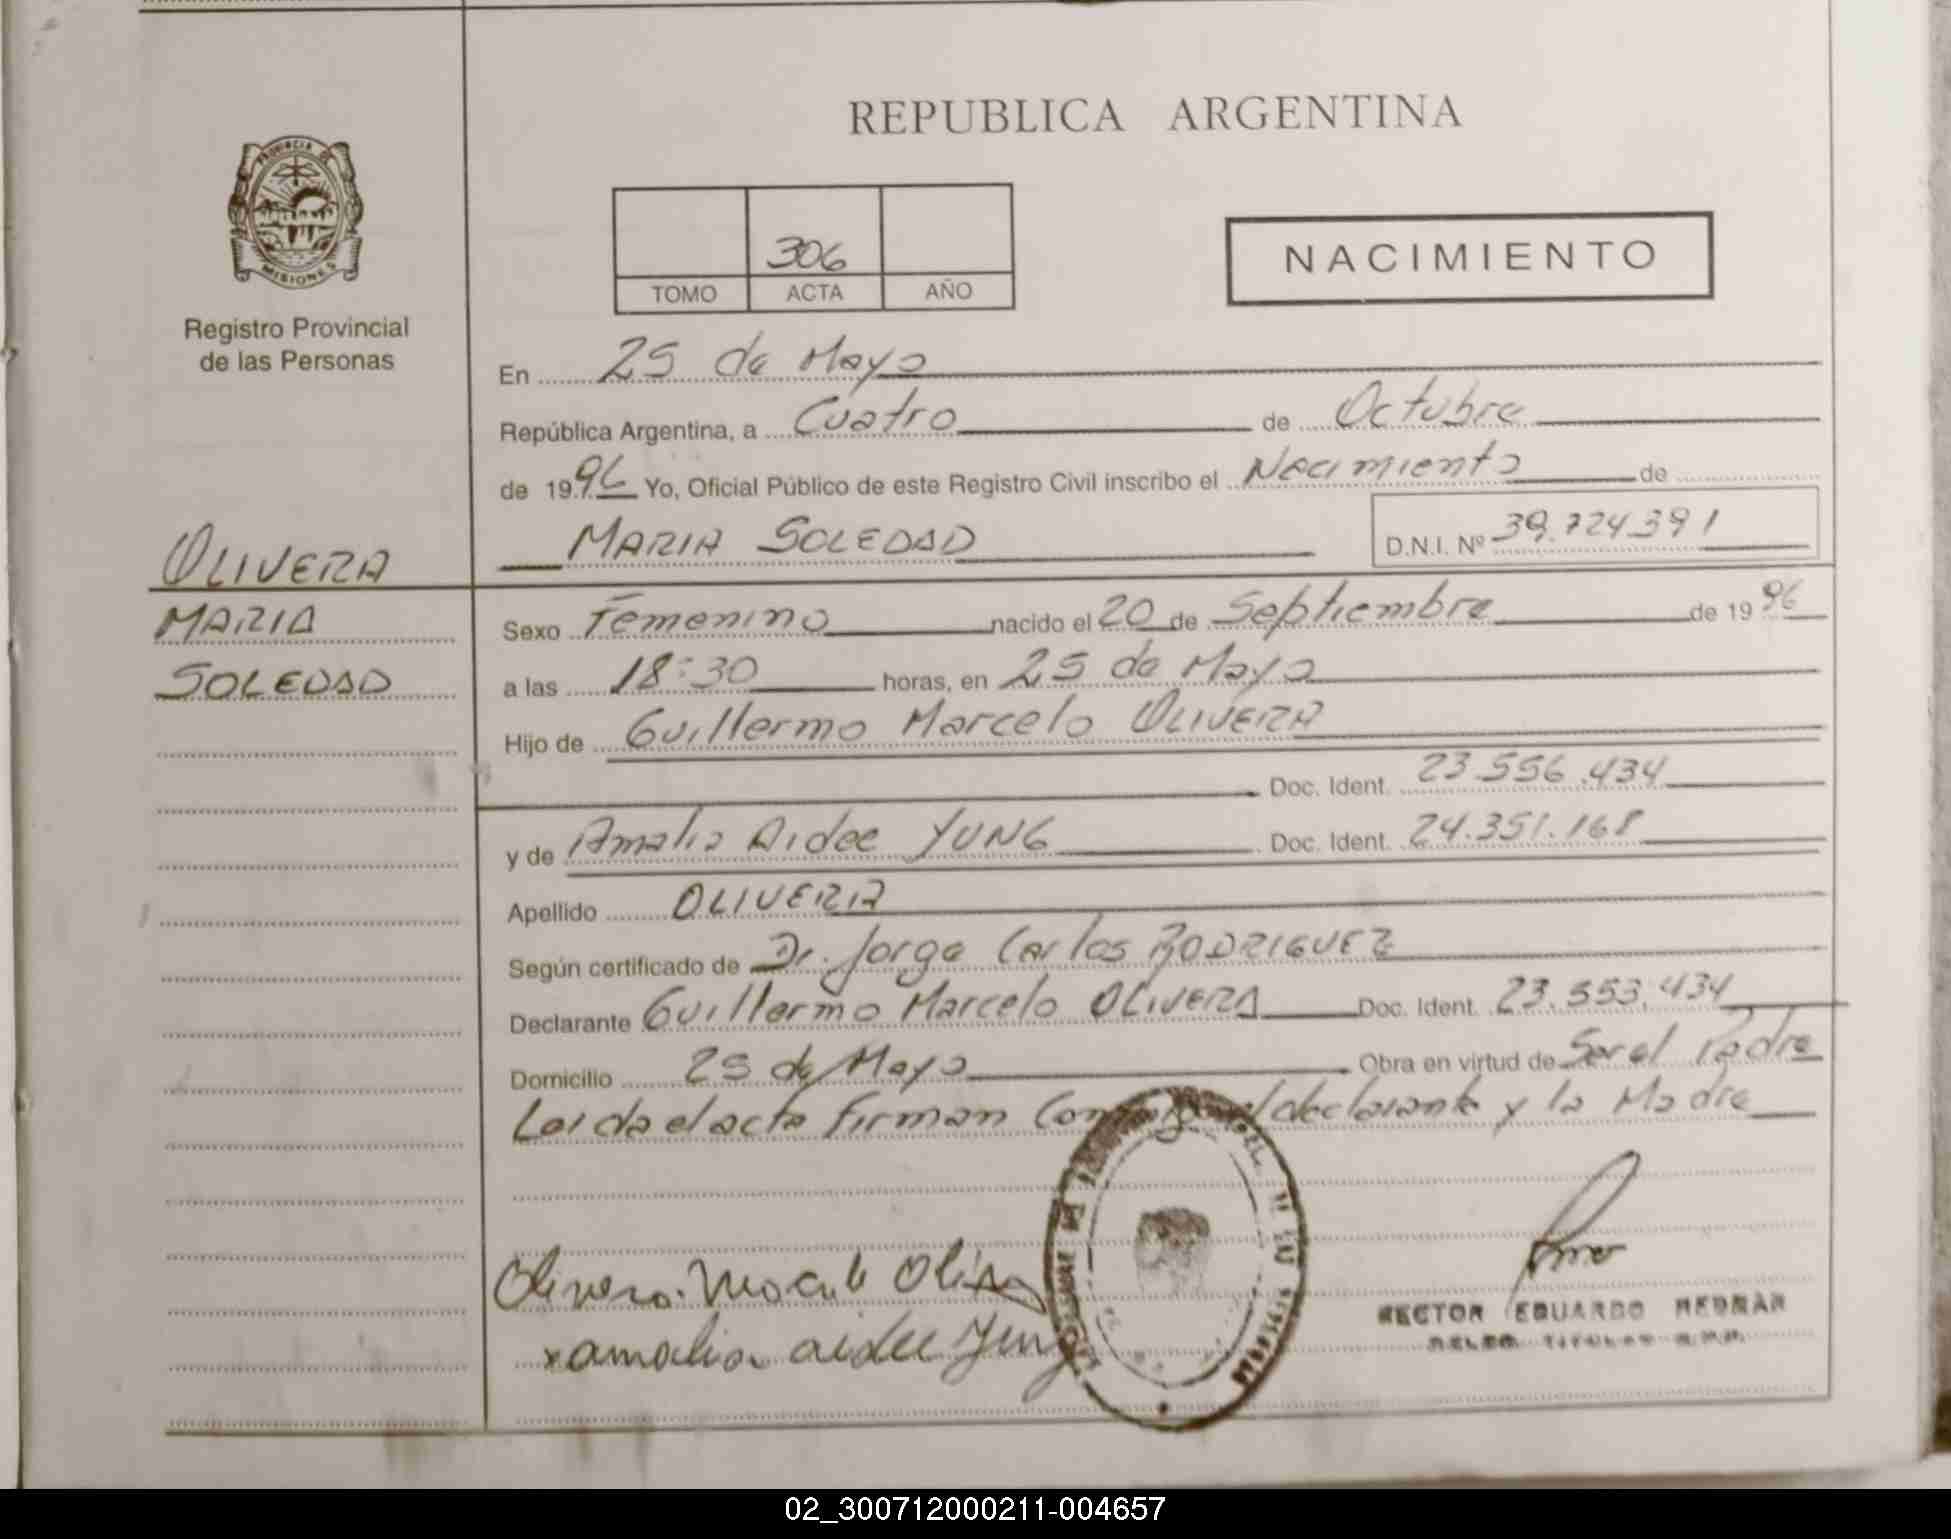 REPUBLICA ARGENTINA
PROVINCIA DE
MISIONES
Registro Provincial
de las Personas
306
TOMO ACTA AÑO
NACIMIENTO
En 25 de Mayo
República Argentina, a Cuatro de Octubre
de 1996 Yo, Oficial Público de este Registro Civil inscribo el Nacimiento de
MARIA SOLEDAD D.N.I. Nº 39.724.391
OLIVERA
MARIA
SOLEDAD
Sexo Femenino nacido el 20 de Septiembre de 1996
a las 18:30 horas, en 25 de Mayo
Hijo de Guillermo Marcelo OLIVERA
Doc. Ident. 23.556.434
y de Amalia Aidee YUNG Doc. Ident. 24.351.168
Apellido OLIVERA
Según certificado de Dr. Jorge Carlos RODRIGUEZ
Declarante Guillermo Marcelo OLIVERA Doc. Ident. 23.553.434
Domicilio 25 de Mayo Obra en virtud de Ser el Padre
Leida el acta firman Conmigo el declarante y la Madre
Olivera
amalia aidee Yung
HECTOR EDUARDO
02_300712000211-004657